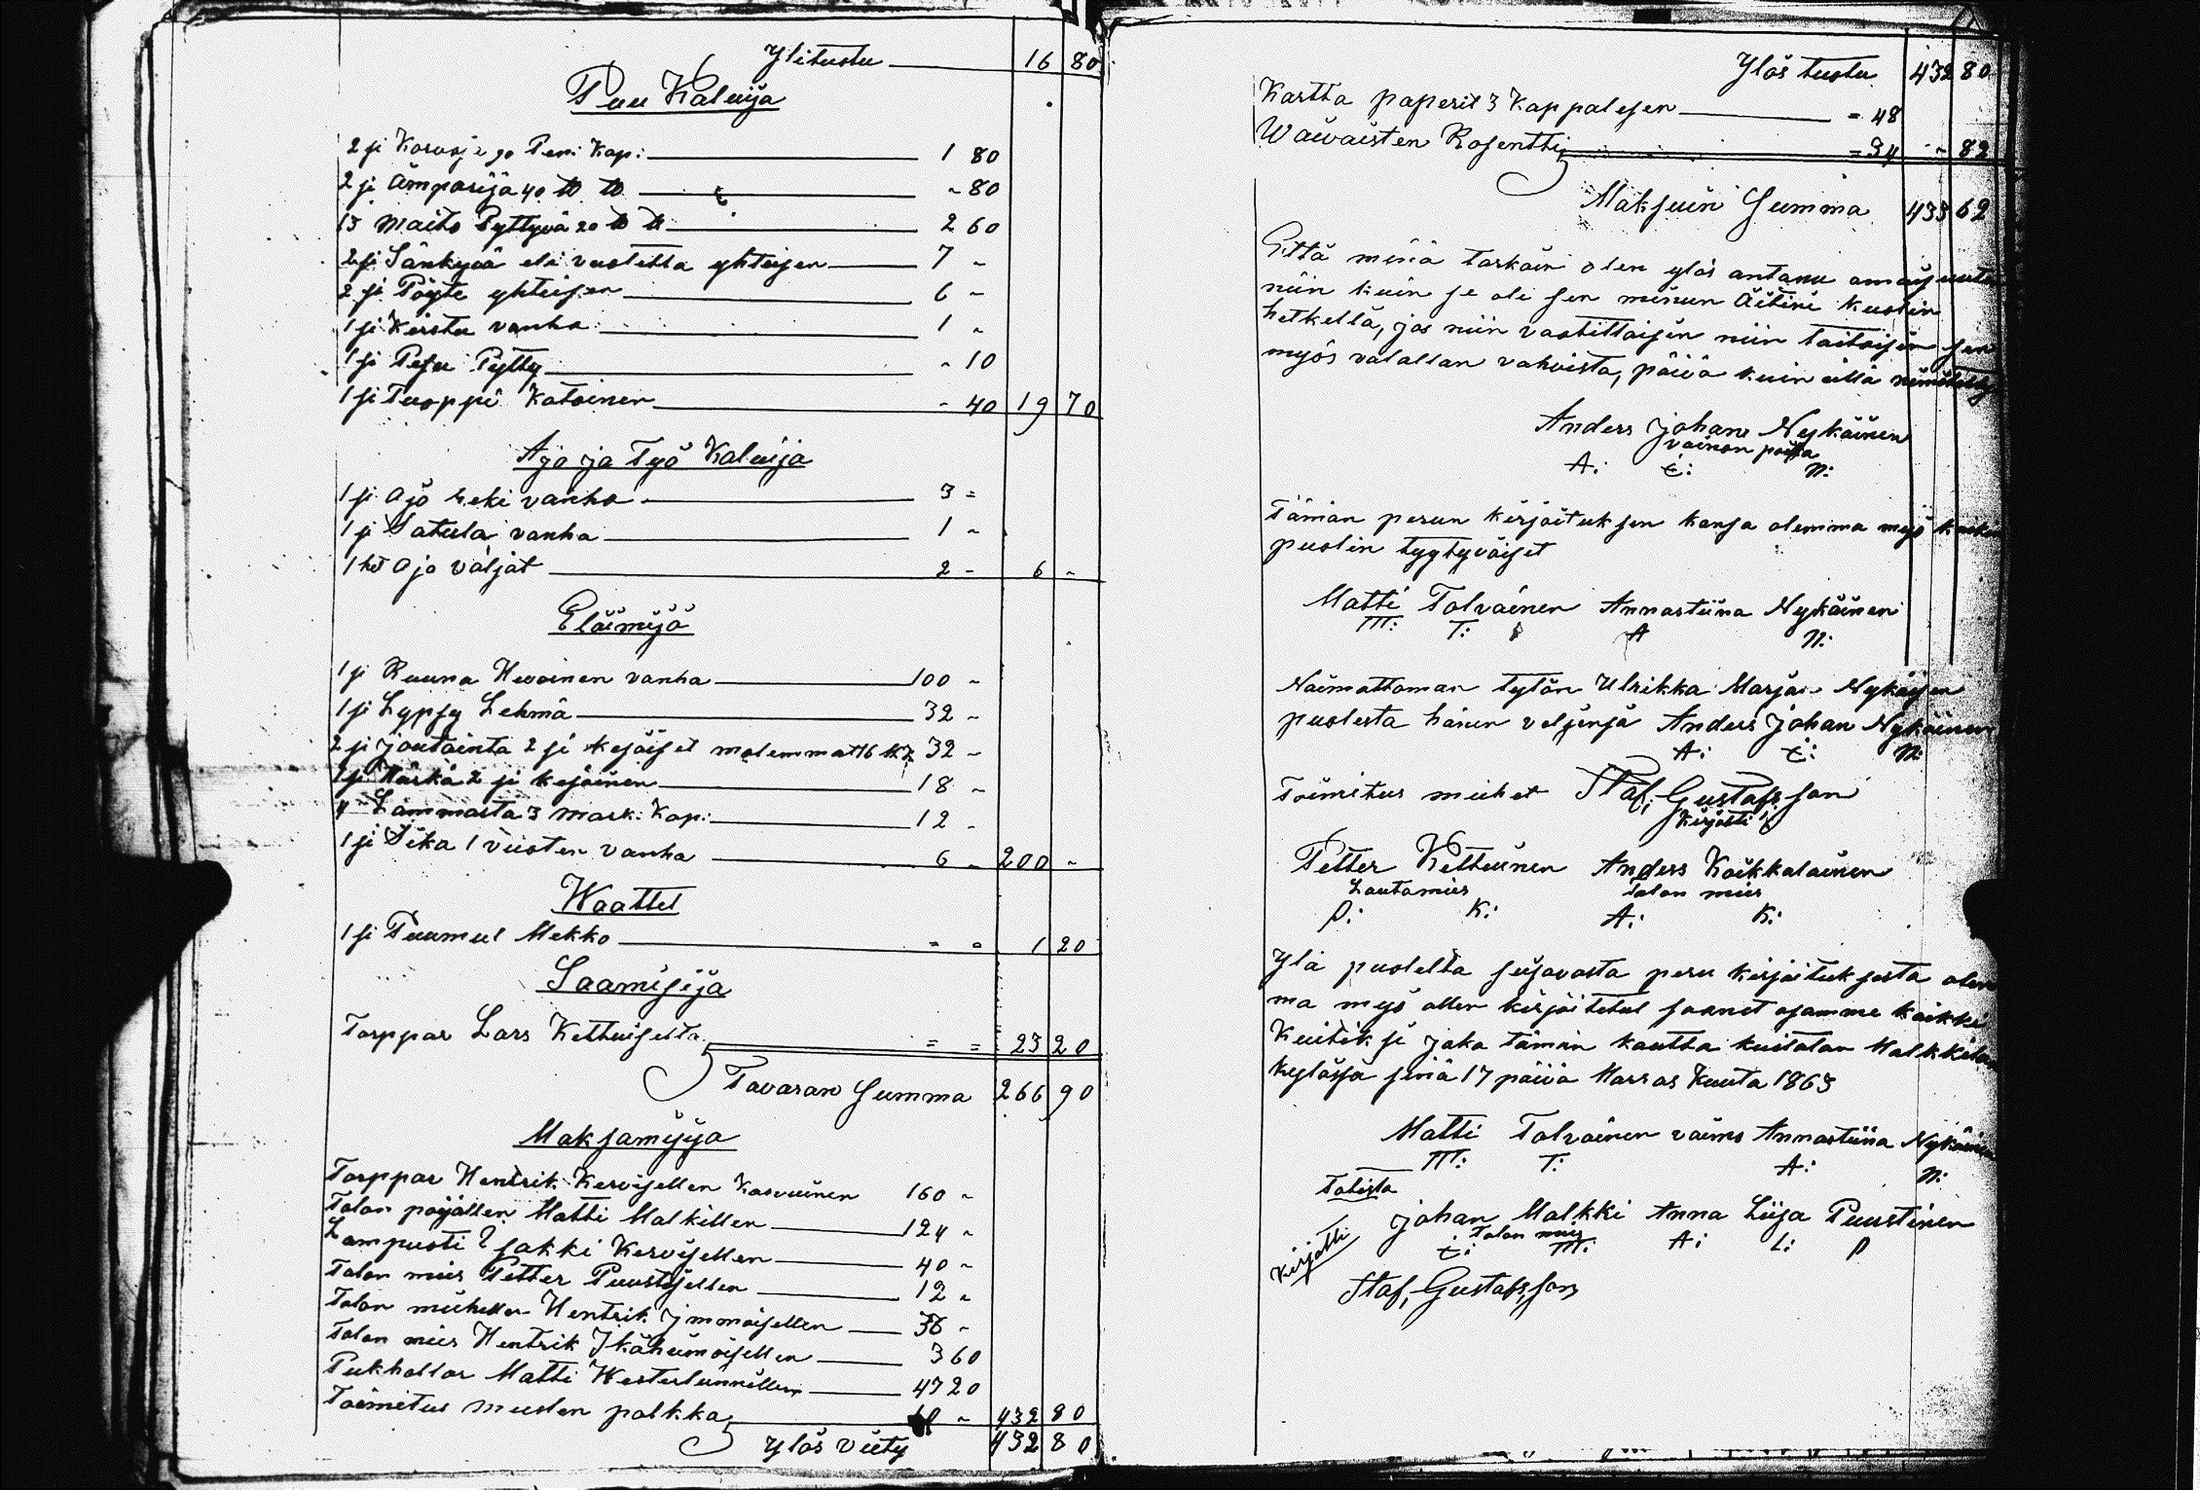 Ylitustu 16 80
Puu Kaluija
2 ji Korvoje 90 Peni Kap: 1 80
2 ji Ämpärijä 40 to to - 80
13 Maito Pyttyvä 20 to to 2 60
2 ji Sänkyvä eli vuotetta yhteisen 7 -
2 ji Pöyte yhteisen 6 -
1 ji Kirstu vanha 1 -
1 ji Pesu Pytty - 10
1 ji Tuoppi Katainen - 40 19 70
Ajo ja Työ Kaluija
1 ji Ajo Reki vanha 3 =
1 ji Satula vanha 1 -
1 Ajo Valjat 2 - 6 -
Eläimijä
1 ji Ruuna Hevoinen vanha 100 -
1 ji Lypsy Lehmä 32 -
2 ji joutointa 2 ji kesäiset molemmat 16 32 -
1 ji Härkä 2 ji kesäinen 18 -
4 Lammasta 3 mark: Kap: 12 -
1 ji Sika 1 vuoten vanha 6 - 200 -
Waattet
1 ji Puumul Mekko = = 1 20
Saamisija
Torppar Lars Kettuiselta = = 23 20
Tavaran Summa 266 90
Maksamisija
Torppar Hentrik Kervisellen Korvuinen 160 -
Talon pojallen Matti Malkillen 124 -
Lampuoti Jakki Kervisellen 40 -
Talon mies Petter Puustisellen 12 -
Talon miehellen Hentrik Immoisellen 36 -
Talon mies Hentrik Ikäheimoisellen 3 60
Pukhollar Matti Westerlunnillen 47 20
Toimitus miesten palkka 10 - 432 80
Ylös viety 432 80
Ylös tuotu 432 80
Kartta paperit 3 Kappalesen = 48
Waivaisten Rosentti = 34 - 82
Maksuin Summa 433 62
Että minä tarkoin olen ylös antanu omaisuuten
niin kuin se oli sen minun Äitini kuolin
hetkellä, jos niin vaatittaisin niin taitaisin sen
myös valallan vahvista, päivä kuin ällä nimitetty
Anders Johan Nykäinen
vainan poika
A: I: N:
Tämän perun kirjoituksen kansa olemma myö kaikin
puolin tyytyväiset
Matti Tolvainen Annastiina Nykäinen
M: T: A N:
Naimattoman tytön Ulrikka Marja Nykäisen
puolesta hänen veljensä Anders Johan Nykäinen
A: I: N:
Toimitus miehet Staf, Gustafsson
Kirjotti
Petter Kettuinen Anders Koikkalainen
Lautamies Talon mies
P: K: A: K:
Ylä puolelta seisovasta peru kirjoituksesta olem
ma myö allen kirjoitetut saanet osamme kaikki
Kuitiksi joka tämän kautta kuitatan Malkkilan
kylässä sinä 17 päivä Marras Kuuta 1863
Matti Tolvainen vaimo Annastiina Nykäinen
M: T: A: N:
Totista
Johan Malkki Anna Liisa Puustinen
Talon mies
I: M: A: L: P
Kirjotti
Staf, Gustafsson